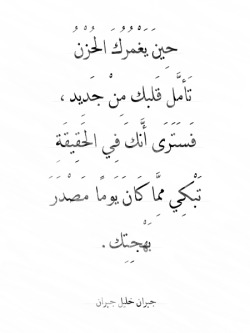 حِيْنَ يَغْمرُكَ الحُزْنُ
تَأمَّل قَلبكَ مِنْ جَدِيد ،
فَسَتَرَى أنَّكَ فِي الحَقِيقَةِ
تَبْكِي مِمَّا كَانَ يَومًا مَصْدَرَ
بَهْجتِك .
جبران خليل جبران